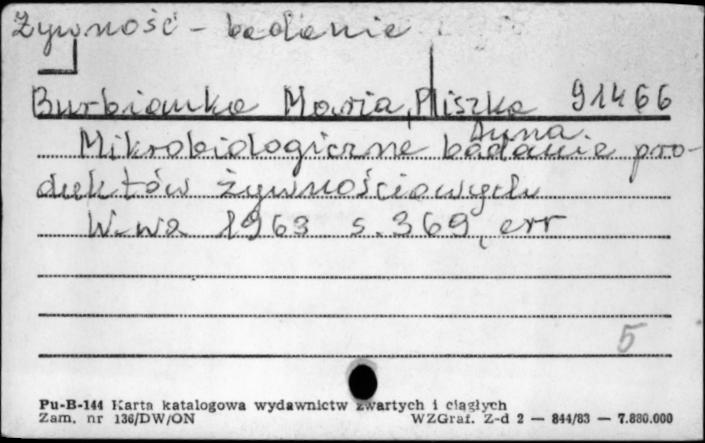 Żywność - badanie
Burbianka Maria, Pliszka 91466
Anna
Mikrobiologiczne badanie pro-
duktów żywnościowych
W-wa 1963 s. 369, err
5
Pu-B-144 Karta katalogowa wydawnictw zwartych i ciągłych
Zam. nr 136/DW/ON WZGraf. Z-d 2 — 844/83 — 7.880.000